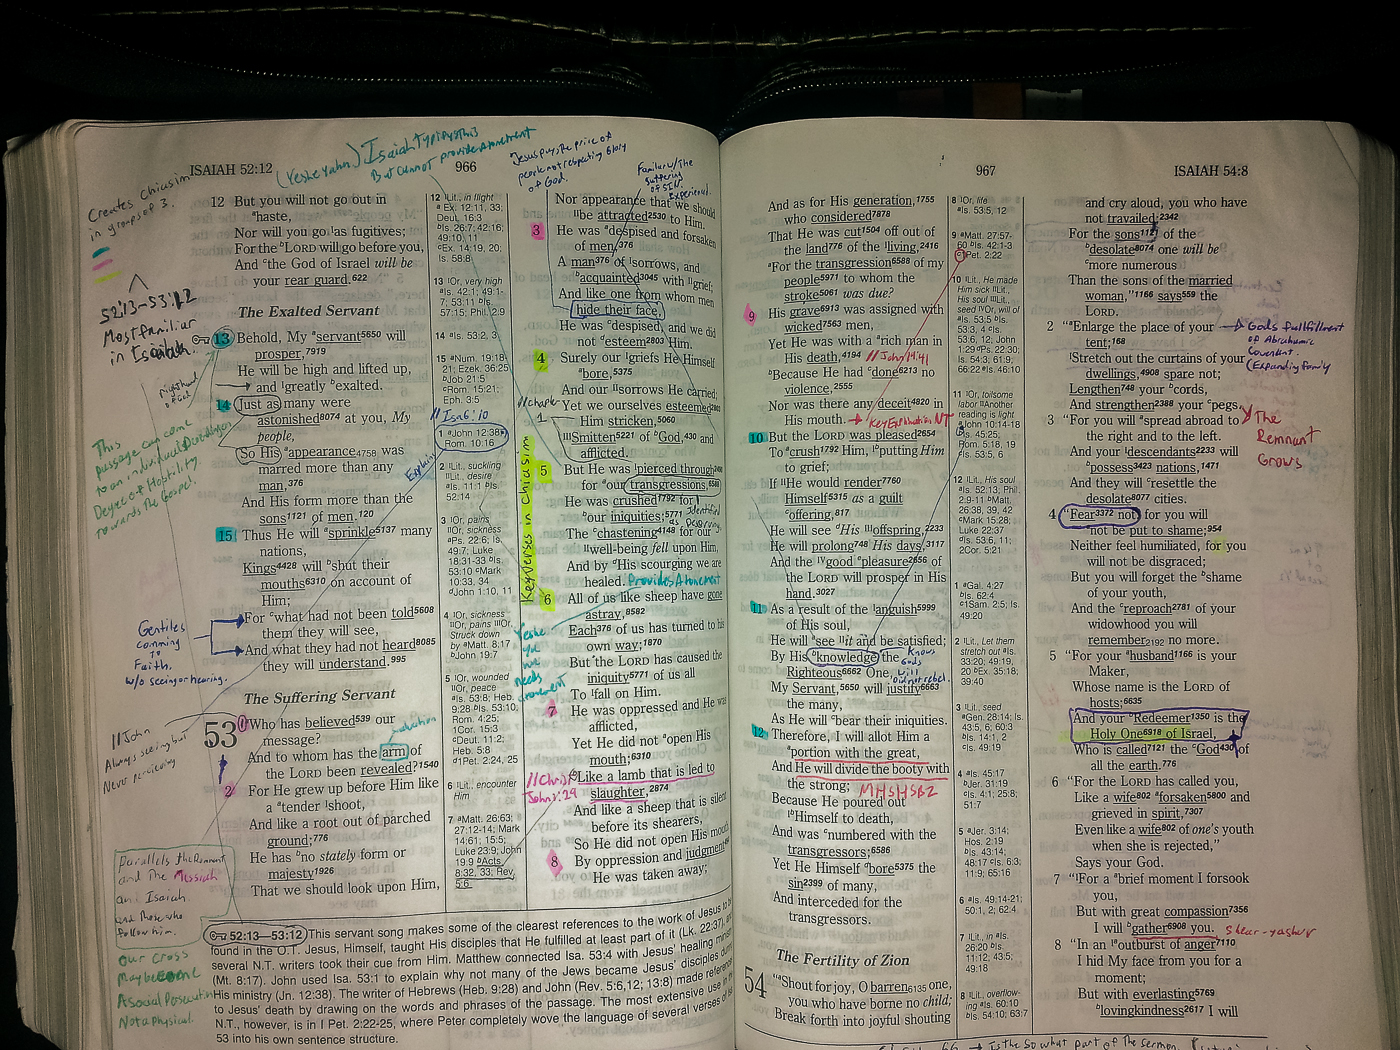 ISAIAH 52:12
966
12 But you will not go out in
ᵃhaste,
Nor will you go ˡas fugitives;
For the ᵇLORD will go before you,
And ᶜthe God of Israel will be
your rear guard.622
The Exalted Servant
13 Behold, My ᵃservant5650 will
prosper,7919
He will be high and lifted up,
and ˡgreatly ᵇexalted.
14 Just as many were
astonished8074 at you, My
people,
So His ᵃappearance4758 was
marred more than any
man,376
And His form more than the
sons1121 of men.120
15 Thus He will ᵃsprinkle5137 many
nations,
Kings4428 will ᵇshut their
mouths6310 on account of
Him;
For ᶜwhat had not been told5608
them they will see,
And what they had not heard8085
they will understand.995
The Suffering Servant
53 Who has believed539 our
message?
And to whom has the arm of
the LORD been revealed?1540
2 For He grew up before Him like
a ᵃtender ˡshoot,
And like a root out of parched
ground;776
He has ᵇno stately form or
majesty1926
That we should look upon Him,
12 ˡLit., in flight
ᵃEx. 12:11, 33;
Deut. 16:3
ᵇIs. 26:7; 42:16;
49:10, 11
ᶜEx. 14:19, 20;
Is. 58:8
13 ˡOr, very high
ᵃIs. 42:1; 49:1-
7; 53:11 ᵇIs.
57:15; Phil. 2:9
14 ᵃIs. 53:2, 3
15 ᵃNum. 19:18-
21; Ezek. 36:25
ᵇJob 21:5
ᶜRom. 15:21;
Eph. 3:5
// Isa 6:10
1 ᵃJohn 12:38
Rom. 10:16
2 ˡLit., suckling
ˡˡLit., desire
ᵃIs. 11:1 ᵇIs.
52:14
3 ˡOr, pains
ˡˡOr, sickness
ᵃPs. 22:6; Is.
49:7; Luke
18:31-33 ᵇIs.
53:10 ᶜMark
10:33, 34
ᵈJohn 1:10, 11
4 ˡOr, sickness
ˡˡOr, pains ˡˡˡOr,
Struck down
by ᵃMatt. 8:17
ᵇJohn 19:7
5 ˡOr, wounded
ˡˡOr, peace
ᵃIs. 53:8; Heb.
9:28 ᵇIs. 53:10,
Rom. 4:25;
1Cor. 15:3
ᶜDeut. 11:2;
Heb. 5:8
ᵈ1Pet. 2:24, 25
6 ˡLit., encounter
Him
7 ᵃMatt. 26:63;
27:12-14; Mark
14:61; 15:5;
Luke 23:9; John
19:9 ᵇActs
8:32, 33; Rev.
5:6
Nor appearance that we should
ˡˡbe attracted2530 to Him.
3 He was ᵃdespised and forsaken
of men,376
A man376 of ˡsorrows, and
ᵇacquainted3045 with ˡˡgrief;
And like one from whom men
hide their face,
He was ᶜdespised, and we did
not ᵈesteem2803 Him.
4 Surely our ˡgriefs He Himself
ᵃbore,5375
And our ˡˡsorrows He carried;
Yet we ourselves esteemed2803
Him stricken,5060
ˡˡˡSmitten5221 of ᵇGod,430 and
afflicted.
5 But He was ˡpierced through2490
for ᵃour transgressions,6588
He was crushed1792 for
ᵇour iniquities;5771
The ᶜchastening4148 for our
ˡˡwell-being fell upon Him,
And by ᵈHis scourging we are
healed.
6 All of us like sheep have gone
astray,8582
Each376 of us has turned to his
own way;1870
But the LORD has caused the
iniquity5771 of us all
To ˡfall on Him.
7 He was oppressed and He was
afflicted,
Yet He did not ᵃopen His
mouth;6310
ᵇLike a lamb that is led to
slaughter,2874
And like a sheep that is silent
before its shearers,
So He did not open His mouth.
8 By oppression and judgment
He was taken away;
52:13—53:12 This servant song makes some of the clearest references to the work of Jesus to be
found in the O.T. Jesus, Himself, taught His disciples that He fulfilled at least part of it (Lk. 22:37), and
several N.T. writers took their cue from Him. Matthew connected Isa. 53:4 with Jesus' healing ministry
(Mt. 8:17). John used Isa. 53:1 to explain why not many of the Jews became Jesus' disciples during
His ministry (Jn. 12:38). The writer of Hebrews (Heb. 9:28) and John (Rev. 5:6,12; 13:8) made reference
to Jesus' death by drawing on the words and phrases of the passage. The most extensive use in the
N.T., however, is in I Pet. 2:22-25, where Peter completely wove the language of several verses of Isa.
53 into his own sentence structure.
Creates Chiasim
in groups of 3.
52:13-53:12
Most familiar
in Isaiah.
Isaiah Typifys this
But cannot provide Atonement
Jesus pays the price of
people not respecting Glory
of God.
Familiar w/ the
suffering
of SIN.
Experienced.
This
passage can come
to an individual Depending on
Degree of Hostility
towards the Gospel.
Explains
// chapter
1
Key verses in Chiasim
Identified
as Deserving
Provides Atonement
Gentiles
comming
to
Faith.
w/o seeing or hearing.
// John
Always seeing but
Never perceiving
// Christ
John 1:29
Parallels the Remnant
and The Messiah
and Isaiah
and those who
follow him.
our cross
May be
A social Persecution
Not a physical.
967
ISAIAH 54:8
And as for His generation,1755
who considered7878
That He was cut1504 off out of
the land776 of the ˡliving,2416
ᵃFor the transgression6588 of my
people5971 to whom the
stroke5061 was due?
9 His grave6913 was assigned with
wicked7563 men,
Yet He was with a ᵃrich man in
His death,4194 // John 19:41
ᵇBecause He had ᶜdone6213 no
violence,2555
Nor was there any deceit4820 in
His mouth. → Key Explanation NT
10 But the LORD was pleased2654
To ᵃcrush1792 Him, ˡᵇputting Him
to grief;
If ˡˡHe would render7760
Himself5315 as a guilt
ᶜoffering,817
He will see ᵈHis ˡˡˡoffspring,2233
He will prolong748 His days,3117
And the ᴵⱽgood ᵉpleasure2656 of
the LORD will prosper in His
hand.3027
11 As a result of the ˡanguish5999
of His soul,
He will ᵃsee ˡˡit and be satisfied;
By His ᵇknowledge the
Righteous6662 One,
My Servant,5650 will justify6663
the many,
As He will ᶜbear their iniquities.
12 Therefore, I will allot Him a
ᵃportion with the great,
And He will divide the booty with
the strong; MHSHSBZ
Because He poured out
ˡᵇHimself to death,
And was ᶜnumbered with the
transgressors;6586
Yet He Himself ᵈbore5375 the
sin2399 of many,
And interceded for the
transgressors.
The Fertility of Zion
54 "ᵃShout for joy, O barren6135 one,
you who have borne no child;
Break forth into joyful shouting
8 ˡOr, life
ᵃIs. 53:5, 12
9 ᵃMatt. 27:57-
60 ᵇIs. 42:1-3
ᶜ1Pet. 2:22
10 ˡLit., He made
Him sick ˡˡLit.,
His soul ˡˡˡLit.,
seed ᴵⱽOr, will of
ᵃIs. 53:5 ᵇIs.
53:3, 4 ᶜIs.
53:6, 12; John
1:29 ᵈPs. 22:30;
Is. 54:3; 61:9;
66:22 ᵉIs. 46:10
11 ˡOr, toilsome
labor ˡˡAnother
reading is light
ᵃJohn 10:14-18
ᵇIs. 45:25;
Rom. 5:18, 19
ᶜIs. 53:5, 6
12 ˡLit., His soul
ᵃIs. 52:13; Phil.
2:9-11 ᵇMatt.
26:38, 39, 42
ᶜMark 15:28;
Luke 22:37
ᵈIs. 53:6, 11;
2Cor. 5:21
1 ᵃGal. 4:27
ᵇIs. 62:4
ᶜ1Sam. 2:5; Is.
49:20
2 ˡLit., Let them
stretch out ᵃIs.
33:20; 49:19,
20 ᵇEx. 35:18;
39:40
3 ˡLit., seed
ᵃGen. 28:14; Is.
43:5, 6; 60:3
ᵇIs. 14:1, 2
ᶜIs. 49:19
4 ᵃIs. 45:17
ᵇJer. 31:19
ᶜIs. 4:1; 25:8;
51:7
5 ᵃJer. 3:14;
Hos. 2:19
ᵇIs. 43:14;
48:17 ᶜIs. 6:3;
11:9; 65:16
6 ᵃIs. 49:14-21;
50:1, 2; 62:4
7 ˡLit., in ᵃIs.
26:20 ᵇIs.
11:12; 43:5;
49:18
8 ˡLit., overflow-
ing ᵃIs. 60:10
ᵇIs. 54:10; 63:7
and cry aloud, you who have
not travailed;2342
For the sons1121 of the
ᵇdesolate8074 one will be
ᶜmore numerous
Than the sons of the married
woman,"1166 says559 the
LORD.
2 "ᵃEnlarge the place of your
tent;168
ˡStretch out the curtains of your
dwellings,4908 spare not;
Lengthen748 your ᵇcords,
And strengthen2388 your ᶜpegs.
3 "For you will ᵃspread abroad to
the right and to the left.
And your ˡdescendants2233 will
ᵇpossess3423 nations,1471
And they will ᶜresettle the
desolate8077 cities.
4 "Fear3372 not, for you will
not be put to shame;954
Neither feel humiliated, for you
will not be disgraced;
But you will forget the ᵇshame
of your youth,
And the ᶜreproach2781 of your
widowhood you will
remember2192 no more.
5 "For your ᵃhusband1166 is your
Maker,
Whose name is the LORD of
hosts;6635
And your ᵇRedeemer1350 is the
Holy One6918 of Israel,
Who is called7121 the ᶜGod430 of
all the earth.776
6 "For the LORD has called you,
Like a wife802 ᵃforsaken5800 and
grieved in spirit,7307
Even like a wife802 of one's youth
when she is rejected,"
Says your God.
7 "ˡFor a ᵃbrief moment I forsook
you,
But with great compassion7356
I will ᵇgather6908 you. shear-yashuv
8 "In an ˡᵃoutburst of anger7110
I hid My face from you for a
moment;
But with everlasting5769
ᵇlovingkindness2617 I will
Knows
Gods
will
Did not rebel.
→ Gods fullfillment
of Abrahamic
Covenant.
(Expanding family
The
Remnant
Grows